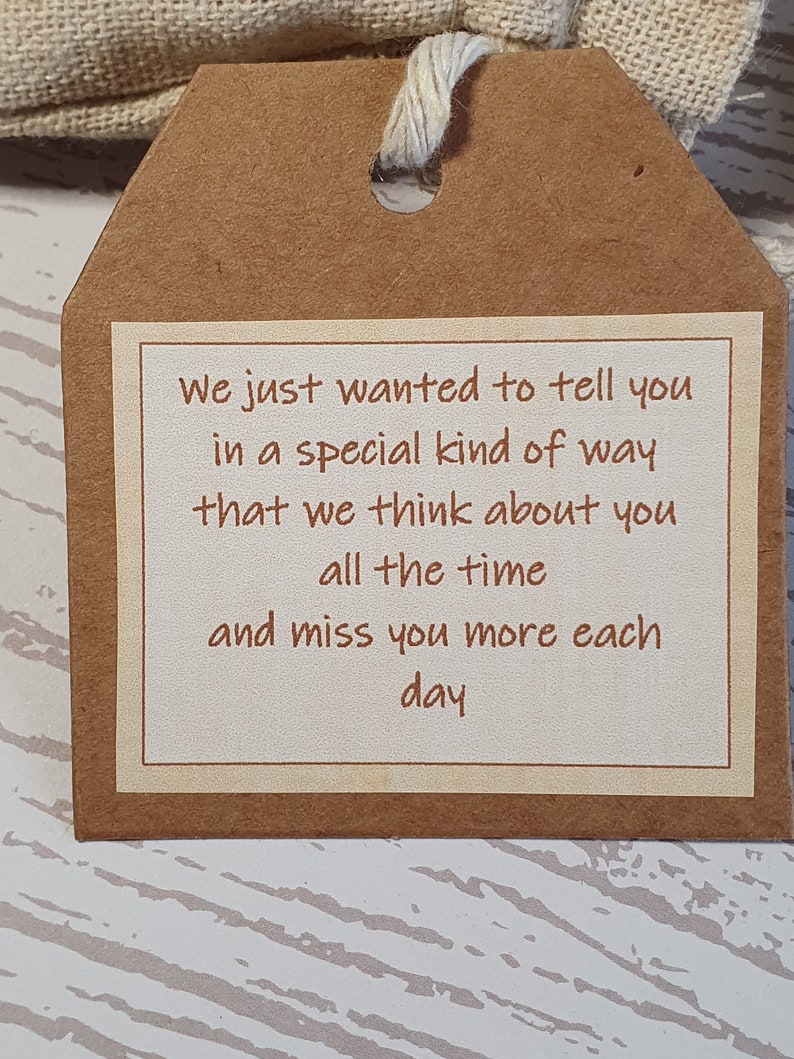 We just wanted to tell you
in a special kind of way
that we think about you
all the time
and miss you more each
day